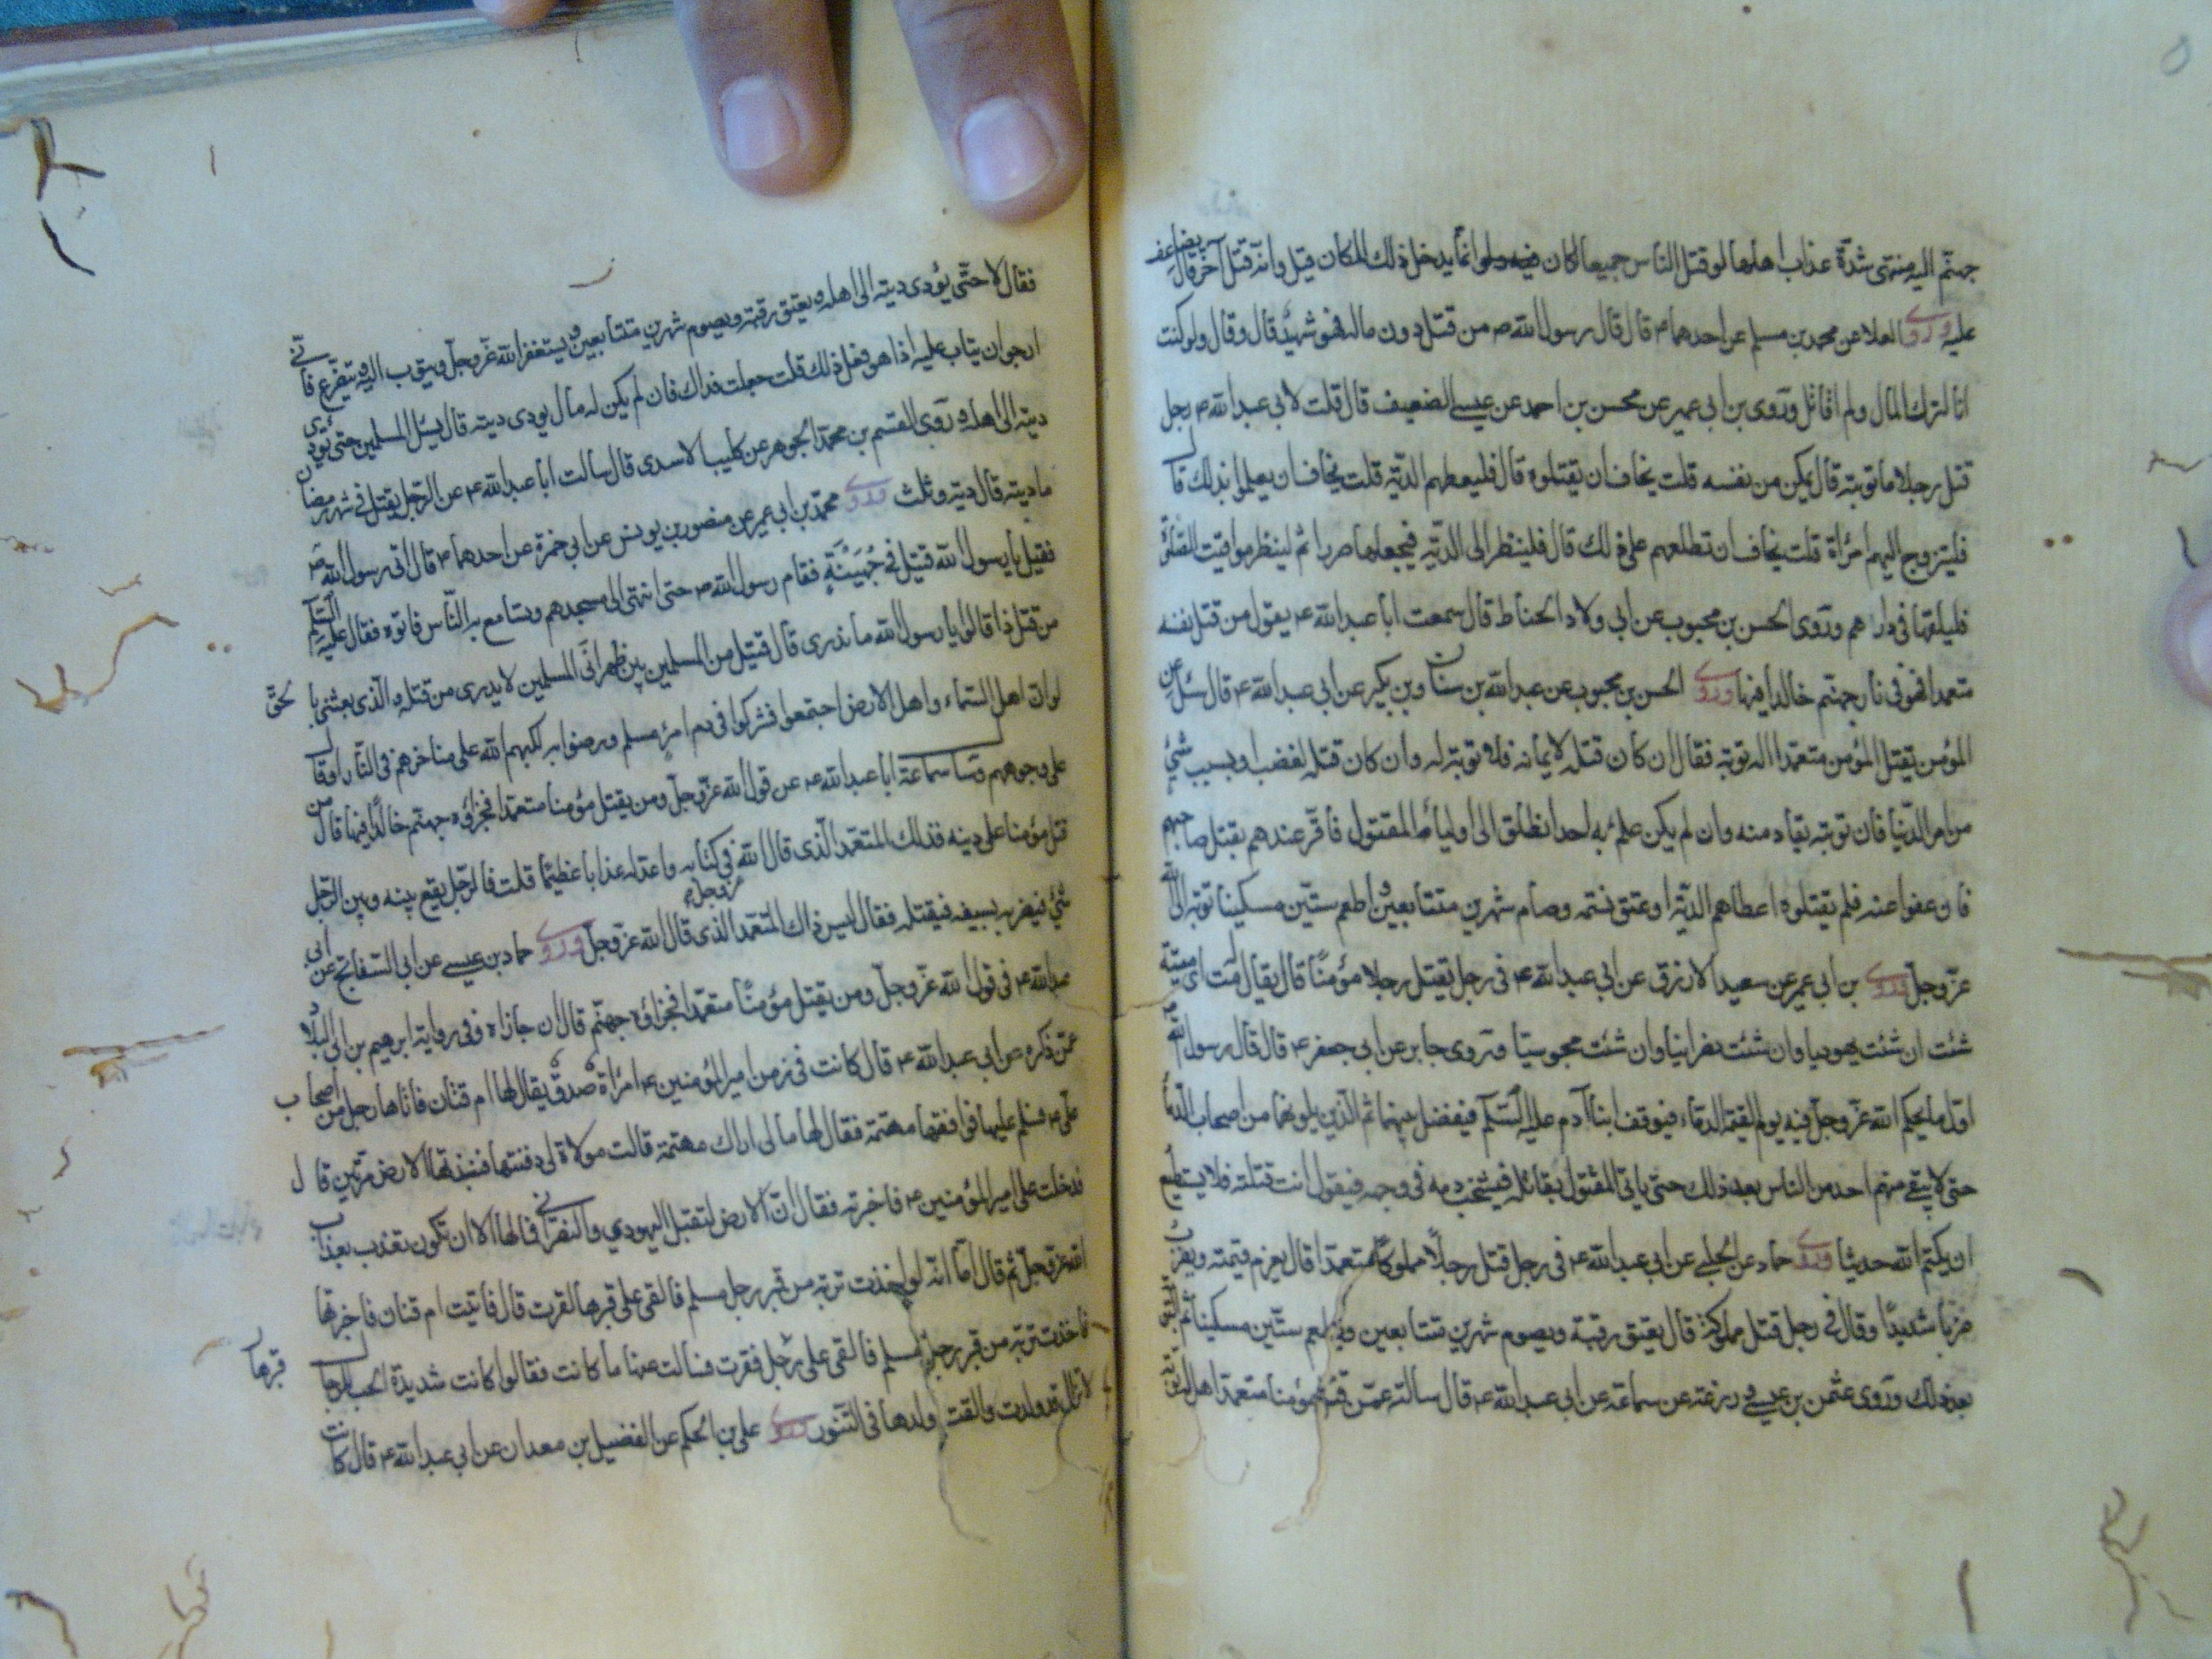 جهنم اليه منتهى شدة عذاب اهلها لو قتل الناس جميعا لكان انما يدخل ذلك المكان قيل وانه قتل آخر قال يضاعف
عليه وروى العلا عن محمد بن مسلم عن احدهما ع قال قال رسول الله ص من قتل دون ماله فهو شهيد قال وقال ولو كنت
انا لترك المال ولم اقاتل وروى بن ابى عمير عن محسن بن احمد عن عيسى الضعيف قال قلت لابى عبد الله ع رجل
قتل رجلا ما توبته قال يمكن من نفسه قلت يخاف ان يقتلوه قال فليعطهم الدية قلت يخاف ان يعلموا بذلك قال
فليتزوج اليهم امرأة قلت يخاف ان تطلعهم على ذلك قال فلينظر الى الدية فيجعلها صررا ثم لينظر مواقيت الصلوة
فليلقها فى دارهم وروى الحسن بن محبوب عن ابى ولاد الحناط قال سمعت ابا عبد الله ع يقول من قتل نفسه
متعمدا فهو فى نار جهنم خالدا فيها وروى الحسن بن محبوب عن عبد الله بن سنان وبن بكير عن ابى عبد الله ع قال سئل عن
المؤمن يقتل المؤمن متعمدا اله توبة فقال ان كان قتله لايمانه فلا توبة له وان كان قتله لغضب او بسبب شئ
من امر الدنيا فان توبته يقاد منه وان لم يكن علم به احد انطلق الى اولياء المقتول فاقر عندهم بقتل صاحبهم
فان عفوا عنه فلم يقتلوه اعطاهم الدية واعتق نسمة وصام شهرين متتابعين واطعم ستين مسكينا توبة الى الله
عز وجل وروى بن ابى عمير عن سعيد الازرق عن ابى عبد الله ع فى رجل يقتل رجلا مؤمنا قال يقال له مت اى ميتة
شئت ان شئت يهوديا وان شئت نصرانيا وان شئت مجوسيا وروى جابر عن ابى جعفر ع قال قال رسول الله ص
اول ما يحكم الله عز وجل فيه يوم القيمة الدماء فيوقف ابنا آدم عليه السلم فيفصل بينهما ثم الذين يلونهما من اصحاب الدماء
حتى لا يبقى منهم احد من الناس بعد ذلك حتى ياتى المقتول بقاتله فيشخب دمه فى وجهه فيقول انت قتلته فلا يستطيع
ان يكتم الله حديثا وروى حماد عن الحلبى عن ابى عبد الله ع فى رجل قتل رجلا مملوكا متعمدا قال يغرم قيمته ويضرب
ضربا شديدا وقال فى رجل قتل مملوكه قال يعتق رقبة ويصوم شهرين متتابعين ويطعم ستين مسكينا ثم التوبة
بعد ذلك وروى عثمن بن عيسى و زرعة عن سماعة عن ابى عبد الله ع قال سالته عمن قتل مؤمنا متعمدا هل له توبة
فقال لا حتى يؤدى ديته الى اهله ويعتق رقبة ويصوم شهرين متتابعين ويستغفر الله عز وجل ويتوب اليه ويتضرع فانى
ارجو ان يتاب عليه اذا هو فعل ذلك قلت جعلت فداك فان لم يكن له مال يودى ديته قال يسئل المسلمين حتى يؤدى
ديته الى اهله وروى القسم بن محمد الجوهرى عن كليب الاسدى قال سالت ابا عبد الله ع عن الرجل يقتل فى شهر رمضان
ما ديته قال دية وثلث وروى محمد بن ابى عمير عن منصور بن يونس عن ابى حمزة عن احدهما ع قال اتى رسول الله ص
فقيل يا رسول الله قتيل فى جُهَيْنَةٍ فقام رسول الله ص حتى انتهى الى مسجدهم وتسامع به الناس فاتوه فقال عليه السلم
من قتل ذا قالوا يا رسول الله ما ندرى قال قتيل من المسلمين بين ظهرانى المسلمين لا يدرى من قتله والذى بعثنى بالحق
لو ان اهل السماء واهل الارض اجتمعوا فشركوا فى دم امرئ مسلم ورضوا به لكبهم الله على مناخرهم فى النار او قال
على وجوههم وسال سماعة ابا عبد الله ع عن قول الله عز وجل ومن يقتل مؤمنا متعمدا فجزاؤه جهنم خالدا فيها قال من
قتل مؤمنا على دينه فذلك المتعمد الذى قال الله عز وجل فى كتابه واعد له عذابا عظيما قلت فالرجل يقع بينه وبين الرجل
شئ فيضربه بسيفه فيقتله فقال ليس ذاك المتعمد الذى قال الله عز وجل وروى حماد بن عيسى عن ابى السفاتج عن ابى
عبد الله ع فى قول الله عز وجل ومن يقتل مؤمنا متعمدا فجزاؤه جهنم قال ان جازاه وفى رواية ابرهيم بن ابى البلاد
عمن ذكره عن ابى عبد الله ع قال كانت فى زمن امير المؤمنين ع امرأة صدق يقال لها ام قنان فاتاها رجل من اصحاب
على ع فسلم عليها فوافقها مهتمة فقال لها ما لى اراك مهتمة قالت مولاة لى دفنتها فنبذتها الارض مرتين قال
فدخلت على امير المؤمنين ع فاخبرته فقال ان الارض لتقبل اليهودي والنصرانى فما لها الا ان تكون تعذب بعذاب
الله عز وجل ثم قال اما انه لو اخذت تربة من قبر رجل مسلم فالقى على قبرها لقرت قال فاتيت ام قنان فاخبرتها
فاخذت تربة من قبر رجل مسلم فالقى على قبرها فقرت فسالت عنها ما كانت فقالوا كانت شديدة الحب للرجال
لا تزال قد ولدت والقت ولدها فى التنور وروى على بن الحكم عن الفضيل بن سعدان عن ابى عبد الله ع قال كانت